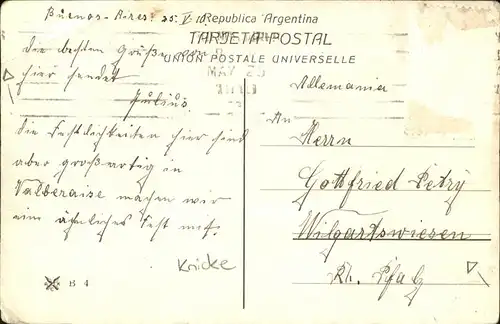 Buenos-Aires. 25. V. 10.
Republica Argentina
TARJETA POSTAL
UNION POSTALE UNIVERSELLE
MAY 25
Die besten Grüße von
hier sendet
Julius.
Die Festlichkeiten hier sind
aber großartig in
machen wir
ein ähnliches Fest mit.
Allemania
An
Herrn
Gottfried Petry
Wilgartswiesen
Rh. Pfalz
Knicke
B 4